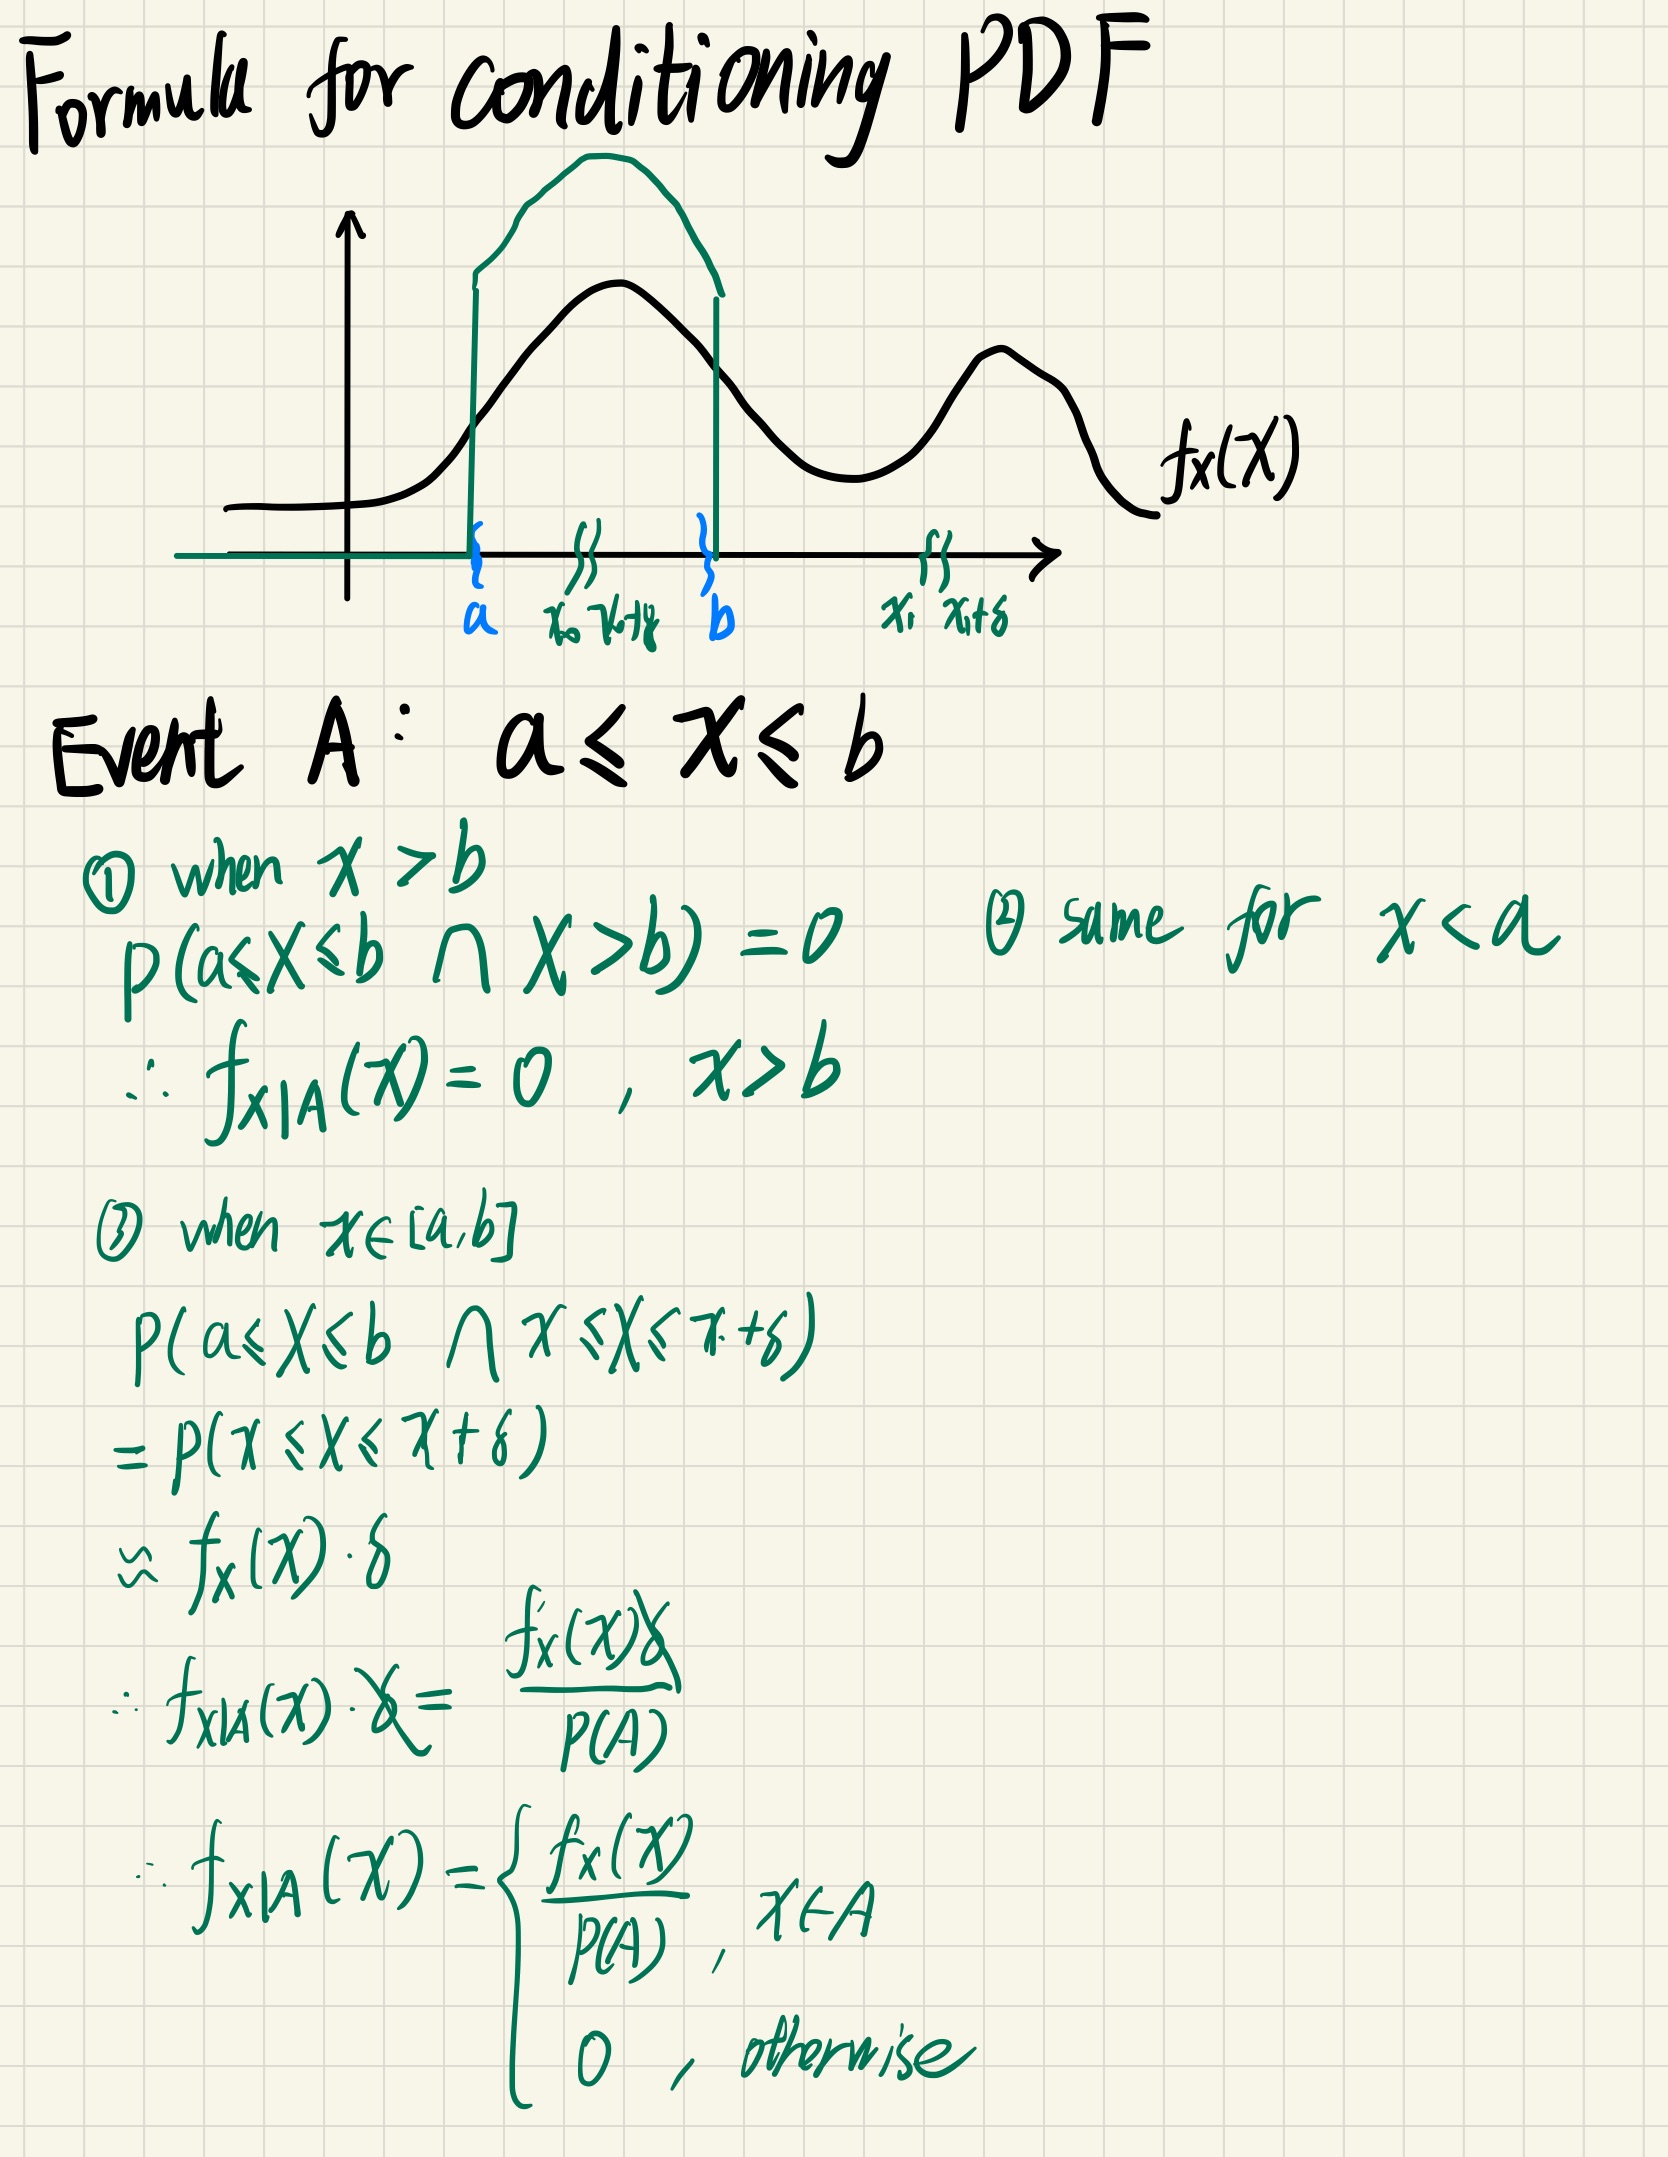 Formula for conditioning PDF
fX(x)
a x₀ x₀+δ b x₁ x₁+δ
Event A : a ≤ x ≤ b
① when x > b
P(a ≤ X ≤ b ∩ X > b) = 0 ② same for x < a
∴ fX|A(x) = 0 , x > b
③ when x ∈ [a, b]
P(a ≤ X ≤ b ∩ x ≤ X ≤ x + δ)
= P(x ≤ X ≤ x + δ)
≈ fX(x) · δ
∴ fX|A(x) · δ = fX(x)δ / P(A)
∴ fX|A(x) = { fX(x) / P(A) , x ∈ A
0 , otherwise